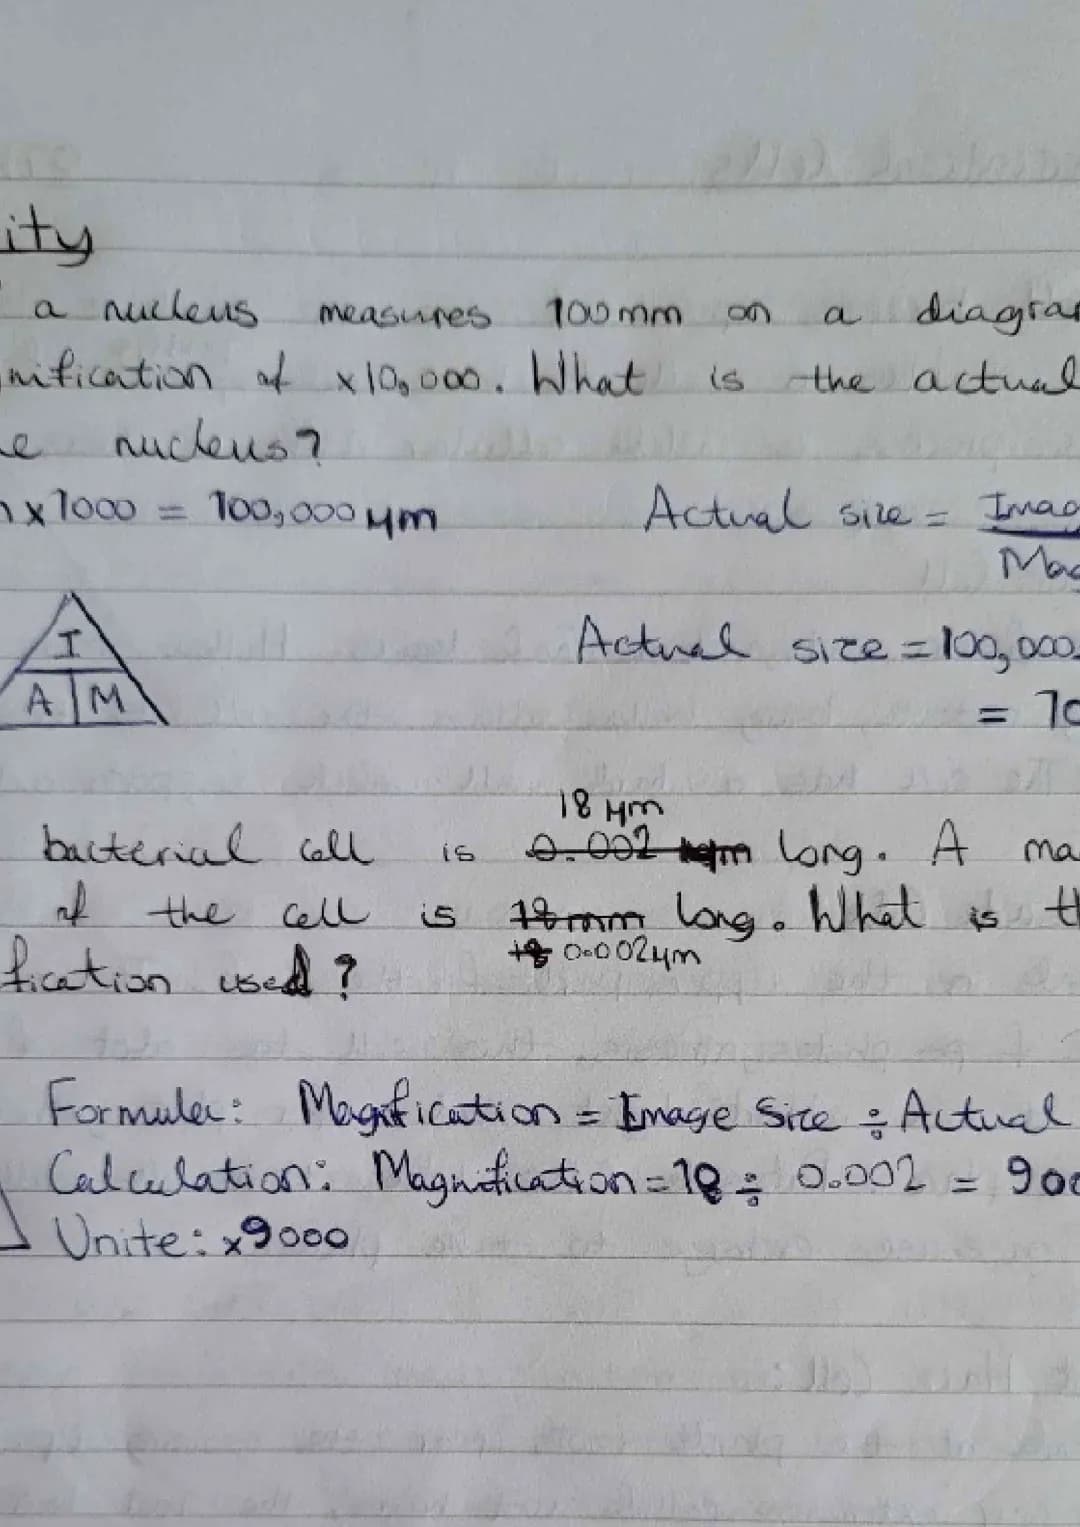 ity
a nucleus measures 100mm on a diagram
nification of x10,000. What is the actual
e nucleus?
x1000 = 100,000 μm
Actual size = Imag
Mag
I
A M
Actual size = 100,000
= 10
18 μm
bacterial cell is 0.002 long. A ma
of the cell is 18mm long. What is th
18 0.002μm
fication used?
Formula: Magnification = Image Size ÷ Actual
Calculation: Magnification = 18 ÷ 0.002 = 900
Unite: x9000